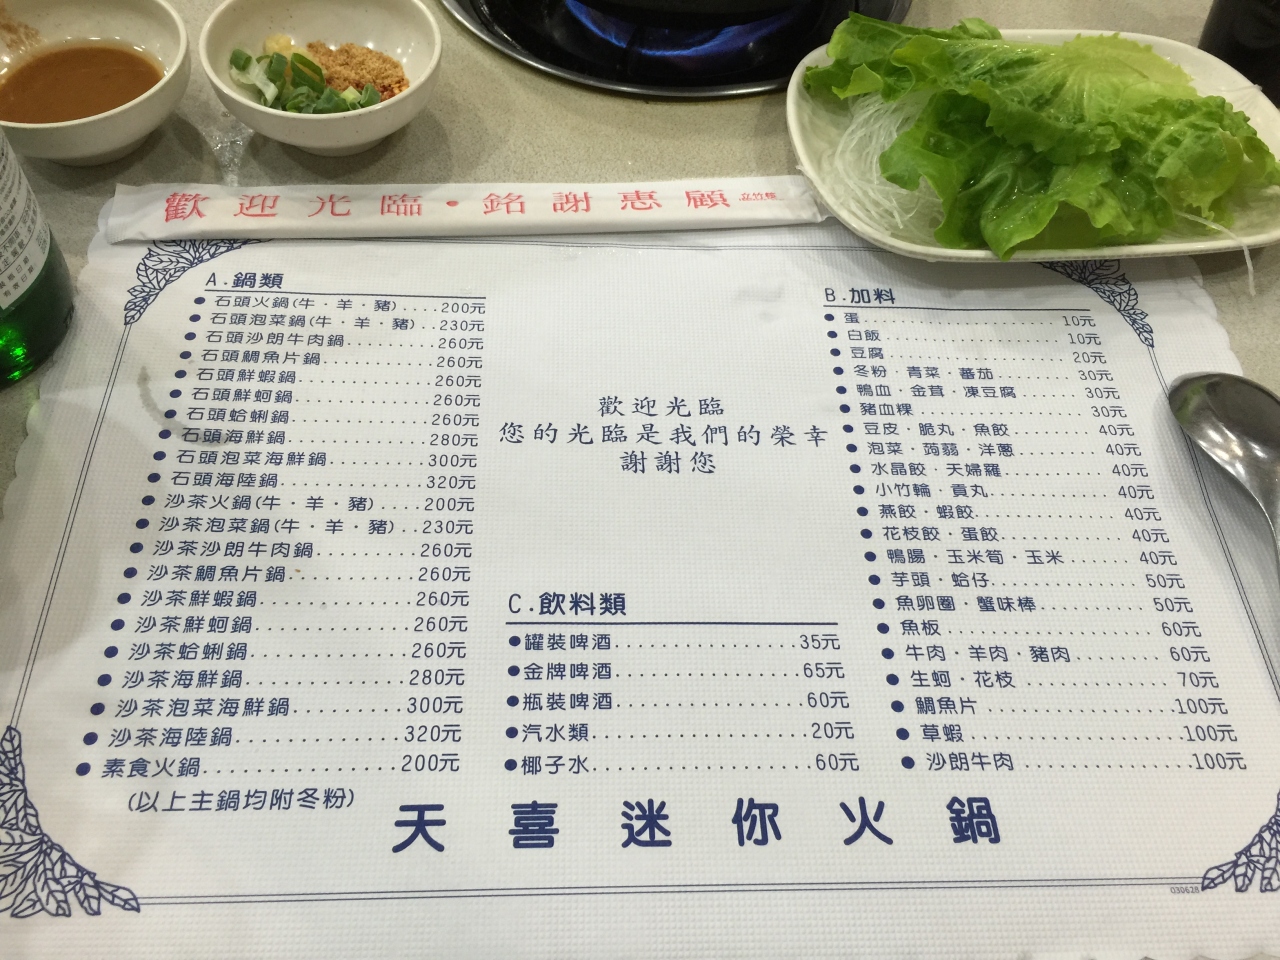 歡迎光臨·銘謝惠顧
A.鍋類
石頭火鍋(牛·羊·豬)....200元
石頭泡菜鍋(牛·羊·豬)..230元
石頭沙朗牛肉鍋..........260元
石頭鯛魚片鍋............260元
石頭鮮蝦鍋..............260元
石頭鮮蚵鍋..............260元
石頭蛤蜊鍋..............260元
石頭海鮮鍋..............280元
石頭泡菜海鮮鍋..........300元
石頭海陸鍋..............320元
沙茶火鍋(牛·羊·豬)....200元
沙茶泡菜鍋(牛·羊·豬)..230元
沙茶沙朗牛肉鍋..........260元
沙茶鯛魚片鍋............260元
沙茶鮮蝦鍋..............260元
沙茶鮮蚵鍋..............260元
沙茶蛤蜊鍋..............260元
沙茶海鮮鍋..............280元
沙茶泡菜海鮮鍋..........300元
沙茶海陸鍋..............320元
素食火鍋................200元
(以上主鍋均附冬粉)
歡迎光臨
您的光臨是我們的榮幸
謝謝您
C.飲料類
罐裝啤酒................35元
金牌啤酒................65元
瓶裝啤酒................60元
汽水類..................20元
椰子水..................60元
B.加料
蛋......................10元
白飯....................10元
豆腐....................20元
冬粉·青菜·蕃茄........30元
鴨血·金茸·凍豆腐......30元
豬血粿..................30元
豆皮·脆丸·魚餃........40元
泡菜·蒟蒻·洋蔥........40元
水晶餃·天婦羅..........40元
小竹輪·貢丸............40元
燕餃·蝦餃..............40元
花枝餃·蛋餃............40元
鴨腸·玉米筍·玉米......40元
芋頭·蛤仔..............50元
魚卵圈·蟹味棒..........50元
魚板....................60元
牛肉·羊肉·豬肉........60元
生蚵·花枝..............70元
鯛魚片..................100元
草蝦....................100元
沙朗牛肉................100元
天喜迷你火鍋
030628